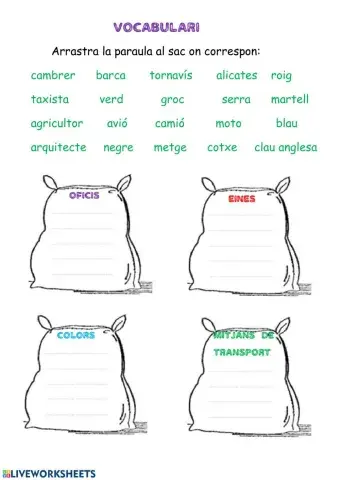 VOCABULARI
Arrastra la paraula al sac on correspon:
cambrer barca tornavís alicates roig
taxista verd groc serra martell
agricultor avió camió moto blau
arquitecte negre metge cotxe clau anglesa
OFICIS
EINES
COLORS
MITJANS DE
TRANSPORT
LIVEWORKSHEETS